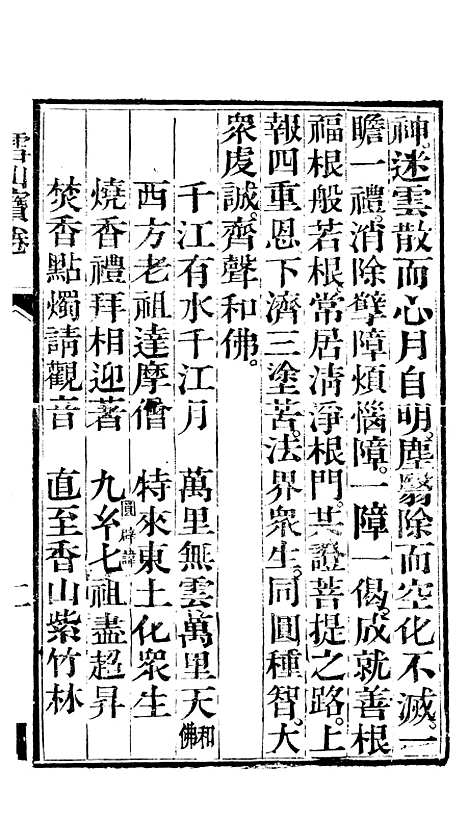 神。迷雲散而心月自明。塵翳除而空化不滅。一
瞻一禮。消除孽障煩惱障。一障一偈。成就善根
福根般若根。常居清淨根門。共證菩提之路。上
報四重恩。下濟三塗苦。法界眾生。同圓種智。大
眾虔誠。齊聲和佛。
千江有水千江月 萬里無雲萬里天 和佛
西方老祖達摩僧 特來東土化眾生
燒香禮拜相迎著 九幺七祖盡超昇
焚香點燭請觀音 直至香山紫竹林
雪山寶卷
二